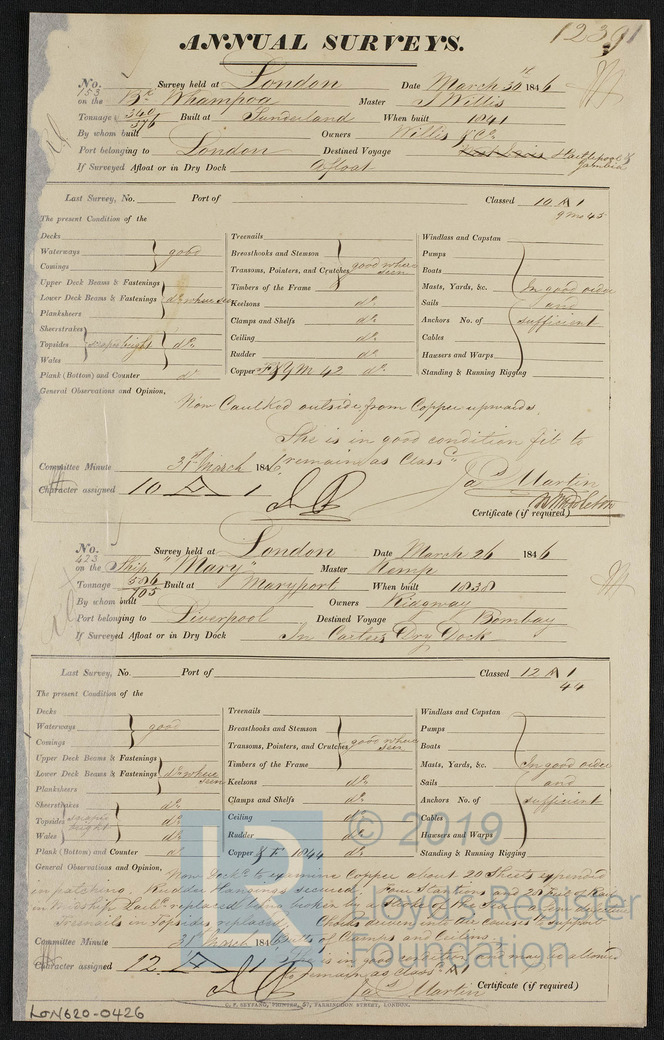 12391
ANNUAL SURVEYS.
No. 153 Survey held at London Date March 30th 1846
on the Bk Whampoa Master J Willis
Tonnage 340 376 Built at Sunderland When built 1841
By whom built Owners Willis & Co
Port belonging to London Destined Voyage Hartlepool &
If Surveyed Afloat or in Dry Dock Afloat
Last Survey, No. Port of Classed 10 A 1
The present Condition of the 9 mo 45
Decks Treenails Windlass and Capstan
Waterways good Breasthooks and Stemson Pumps
Comings Transoms, Pointers, and Crutches good where seen Boats
Upper Deck Beams & Fastenings Timbers of the Frame Masts, Yards, &c. In good order
Lower Deck Beams & Fastenings do where seen Keelsons do Sails and
Planksheers Clamps and Shelfs do Anchors No. of sufficient
Sheerstrakes Ceiling do Cables
Topsides scraped bright do Rudder do Hawsers and Warps
Wales Copper F & Y M 42 do Standing & Running Rigging
Plank (Bottom) and Counter do
General Observations and Opinion,
Now Caulked outside from Copper upwards.
She is in good condition fit to
remain as Class'd
Committee Minute 31st March 1846 Jas Martin
Character assigned 10 A 1
Certificate (if required)
No. 423 Survey held at London Date March 26 1846
on the Ship "Mary" Master Kemp
Tonnage 506 Built at Maryport When built 1838
By whom built Owners Ridgway
Port belonging to Liverpool Destined Voyage Bombay
If Surveyed Afloat or in Dry Dock In Carters Dry Dock
Last Survey, No. Port of Classed 12 A 1
The present Condition of the 44
Decks Treenails Windlass and Capstan
Waterways good Breasthooks and Stemson Pumps
Comings Transoms, Pointers, and Crutches good where seen Boats
Upper Deck Beams & Fastenings Timbers of the Frame Masts, Yards, &c. In good order
Lower Deck Beams & Fastenings do where seen Keelsons do Sails and
Planksheers Clamps and Shelfs do Anchors No. of sufficient
Sheerstrakes do Ceiling do Cables
Topsides scraped bright do Rudder do Hawsers and Warps
Wales do Copper & F 1844 do Standing & Running Rigging
Plank (Bottom) and Counter do
General Observations and Opinion, Now Dock'd to examine Copper about 20 Sheets expended
in patching. Rudder Hangings secured. Four Stantions and 28 feet of Rail
in Midship replaced being broken by a Stroke of the Sea
Treenails in Topsides replaced.
Committee Minute 31 March 1846 of Clamps and Ceiling.
She is in good condition and may be allowed
Character assigned 12 A 1 to remain as Class'd A 1
Jas Martin Certificate (if required)
C. F. SEYFANG, PRINTER, 57, FARRINGDON STREET, LONDON.
LON620-0426
© 2019
Lloyd's Register
Foundation